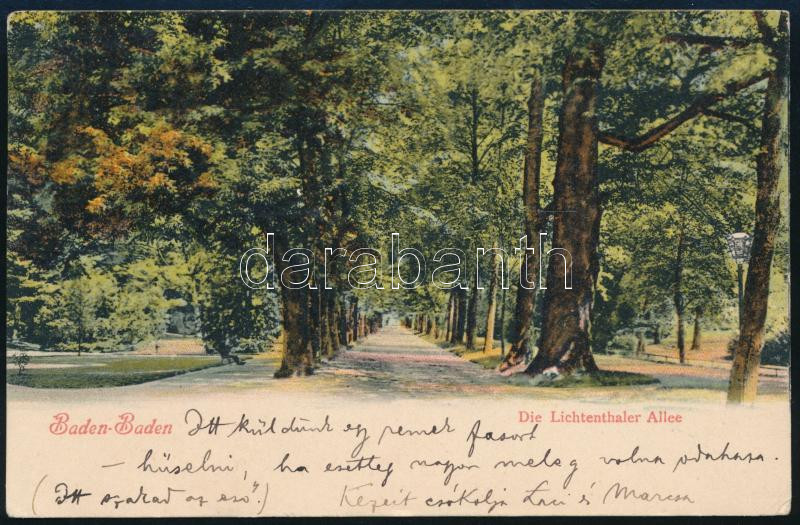 darabanth
Baden-Baden
Die Lichtenthaler Allee
Itt küldünk egy remek fasort
– hüselni, ha esetleg nagyon meleg volna odahaza.
(Itt szakad az eső.) Kezeit csókolja Laci és Marcsa